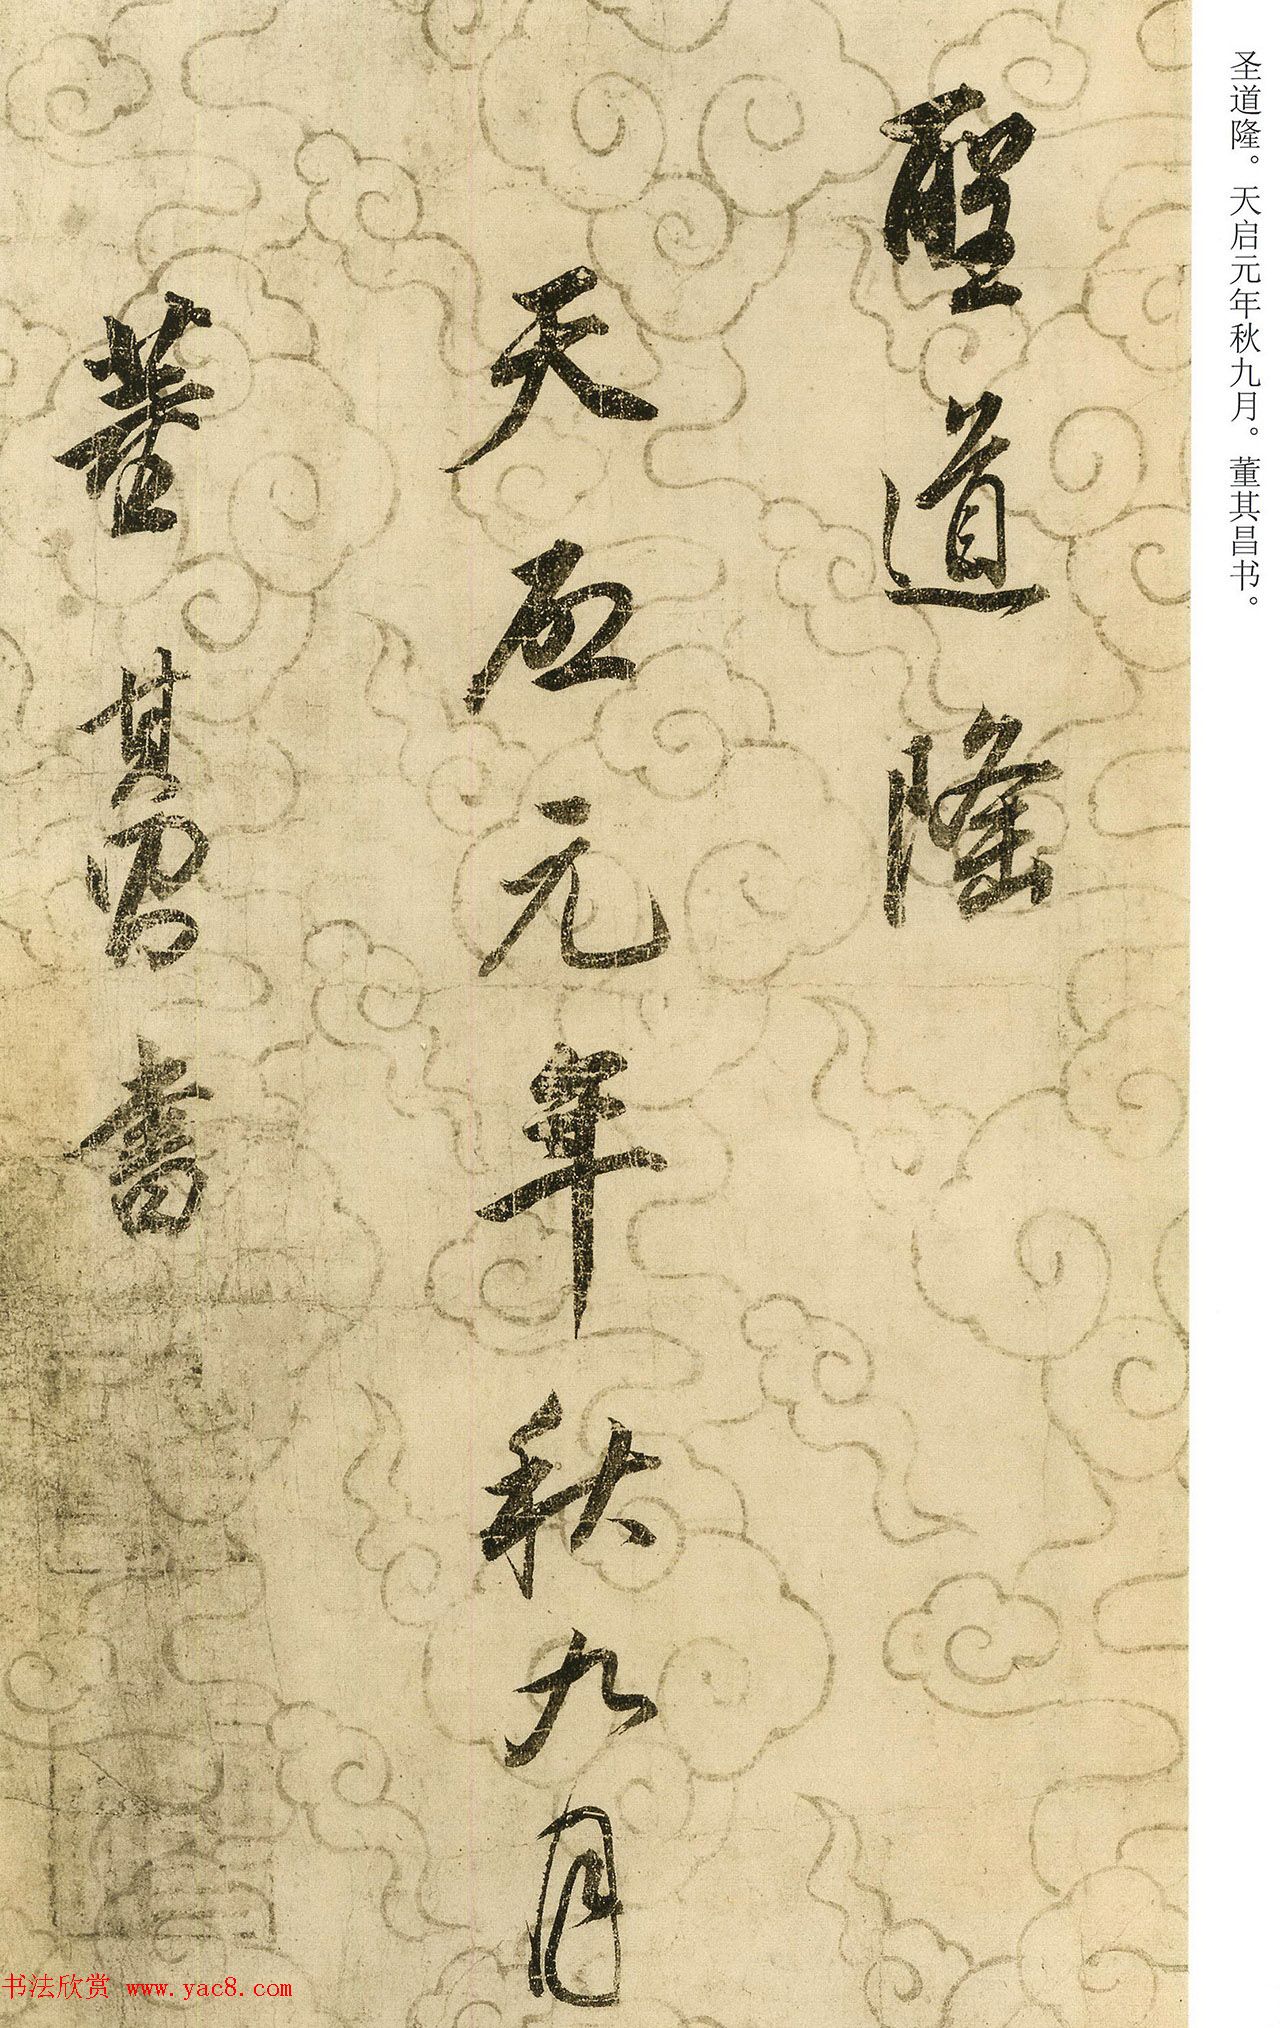 圣道隆。天启元年秋九月。董其昌书。
聖道隆
天啟元年秋九月
董其昌書
书法欣赏 www.yac8.com